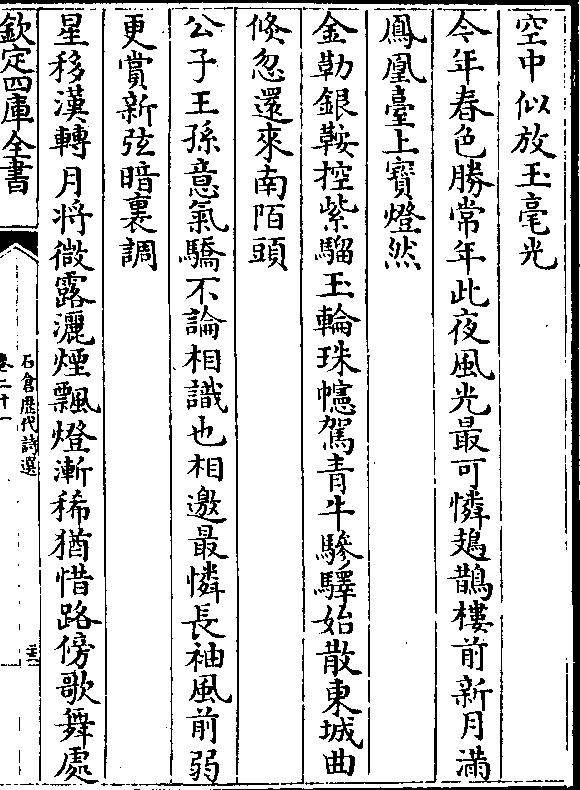 空中似放玉毫光
今年春色勝常年此夜風光最可憐鳷鵲樓前新月滿
鳳凰臺上寶燈然
金勒銀鞍控紫騮玉輪珠幰駕青牛驂驔始散東城曲
倐忽還來南陌頭
公子王孫意氣驕不論相識也相邀最憐長袖風前弱
更賞新弦暗裏調
星移漢轉月將微露灑煙飄燈漸稀猶惜路傍歌舞處
欽定四庫全書
石倉歴代詩選
卷二十一